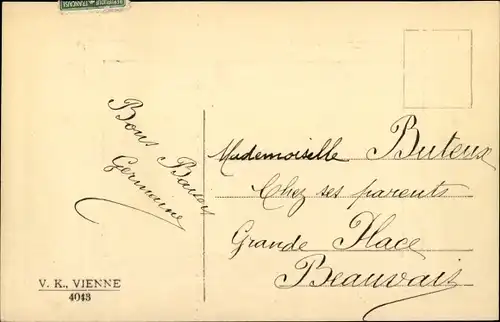 REPUBLIQUE FRANCAISE
Bons Baisers
Germaine
Mademoiselle Buteux
Chez ses parents
Grande Place
Beauvais
V. K., VIENNE
4043